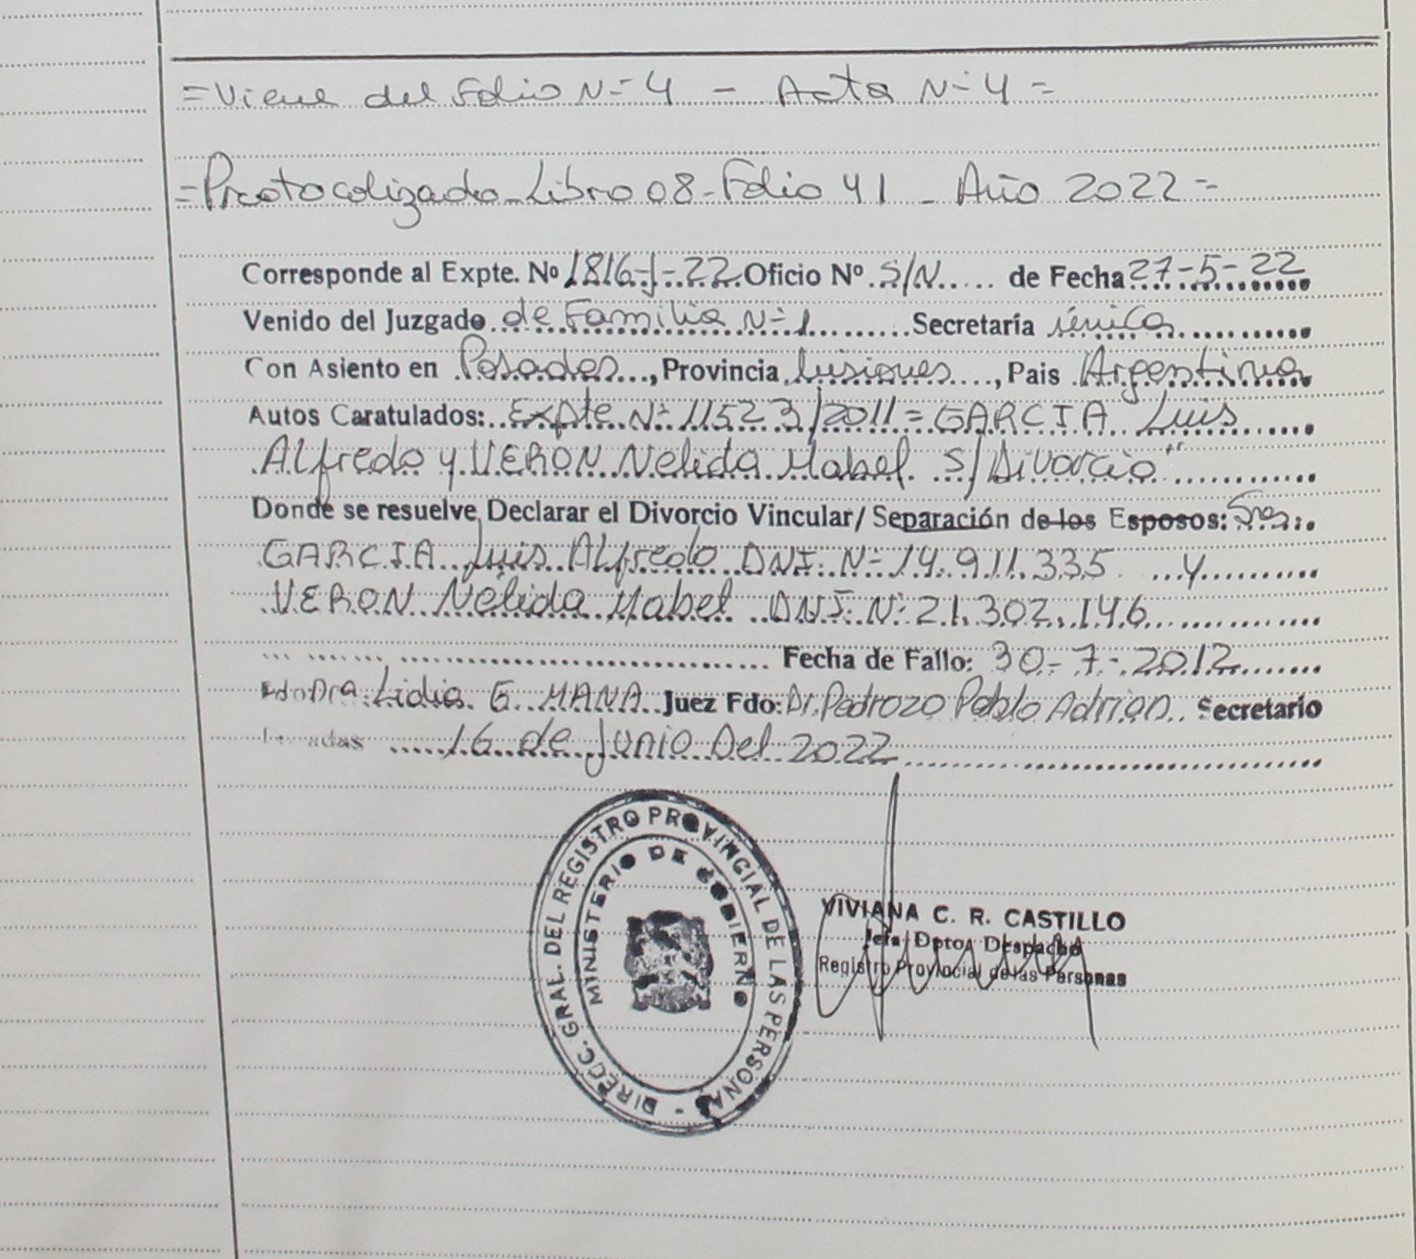 =Viene del Folio N=4 - Acta N=4=
=Protocolizado-Libro 08-Folio 41 - Año 2022=
Corresponde al Expte. Nº 1816-J-22 Oficio Nº S/N..... de Fecha 27-5-22
Venido del Juzgado de Familia N=1 Secretaría única
Con Asiento en Posadas..., Provincia Misiones...., Pais Argentina
Autos Caratulados: Expte N= 11523/2011=GARCIA Luis
Alfredo y VERON Nelida Mabel S/Divorcio"
Donde se resuelve Declarar el Divorcio Vincular/ Separación de los Esposos: Sres:
GARCIA Luis Alfredo DNI N=14.911.335 y
VERON Nélida Mabel DNI N=21.302.146
Fecha de Fallo: 30-7-2012
Fdo Dra. Lidia E. MANA Juez Fdo: Dr. Pedrozo Pablo Adrian Secretario
16 de Junio Del 2022
DIRECC. GRAL. DEL REGISTRO PROVINCIAL DE LAS PERSONAS -
MINISTERIO DE GOBIERNO
VIVIANA C. R. CASTILLO
Jefa Dpto. Despacho
Registro Provincial de las Personas